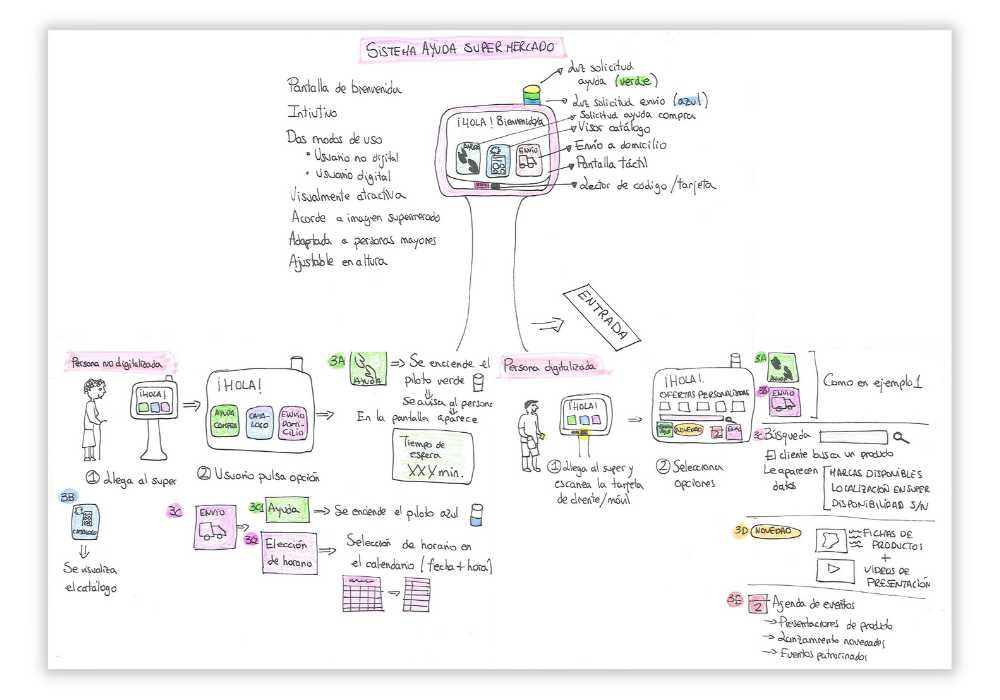 SISTEMA AYUDA SUPERMERCADO
Pantalla de bienvenida
Intuitivo
Dos modos de uso
• Usuario no digital
• Usuario digital
Visualmente atractiva
Acorde a imagen supermercado
Adaptada a personas mayores
Ajustable en altura
¡HOLA! Bienvenido/a
AYUDA
ENVÍO
Luz solicitud
ayuda (verde)
Luz solicitud envío (azul)
Solicitud ayuda compra
Visor catálogo
Envío a domicilio
Pantalla táctil
Lector de código/tarjeta
ENTRADA
Persona no digitalizada
¡HOLA!
① Llega al super
¡HOLA!
AYUDA
COMPRA
CATA-
LOGO
ENVIO
DOMI-
CILIO
② Usuario pulsa opción
3A
AYUDA
Se enciende el
piloto verde
Se avisa al personal
En la pantalla aparece
Tiempo de
espera
XXY min.
3B
CATALOGO
Se visualiza
el catálogo
3C
ENVIO
3C1 Ayuda
Se enciende el piloto azul
Elección
de horario
Selección de horario en
el calendario (fecha + hora)
Persona digitalizada
¡HOLA!
① Llega al super y
escanea la tarjeta
de cliente/móvil
¡HOLA!.
OFERTAS PERSONALIZADAS
NOVEDAD
2
② Selecciona
opciones
3A
AYUDA
3B
ENVIO
Como en ejemplo 1
3C Búsqueda
El cliente busca un producto
Le aparecen
datos
MARCAS DISPONIBLES
LOCALIZACIÓN EN SUPER
DISPONIBILIDAD S/N
3D NOVEDAD
FICHAS DE
PRODUCTOS
+
VIDEOS DE
PRESENTACIÓN
3E 2 Agenda de eventos
→ Presentaciones de producto
→ Lanzamiento novedades
→ Eventos patrocinados